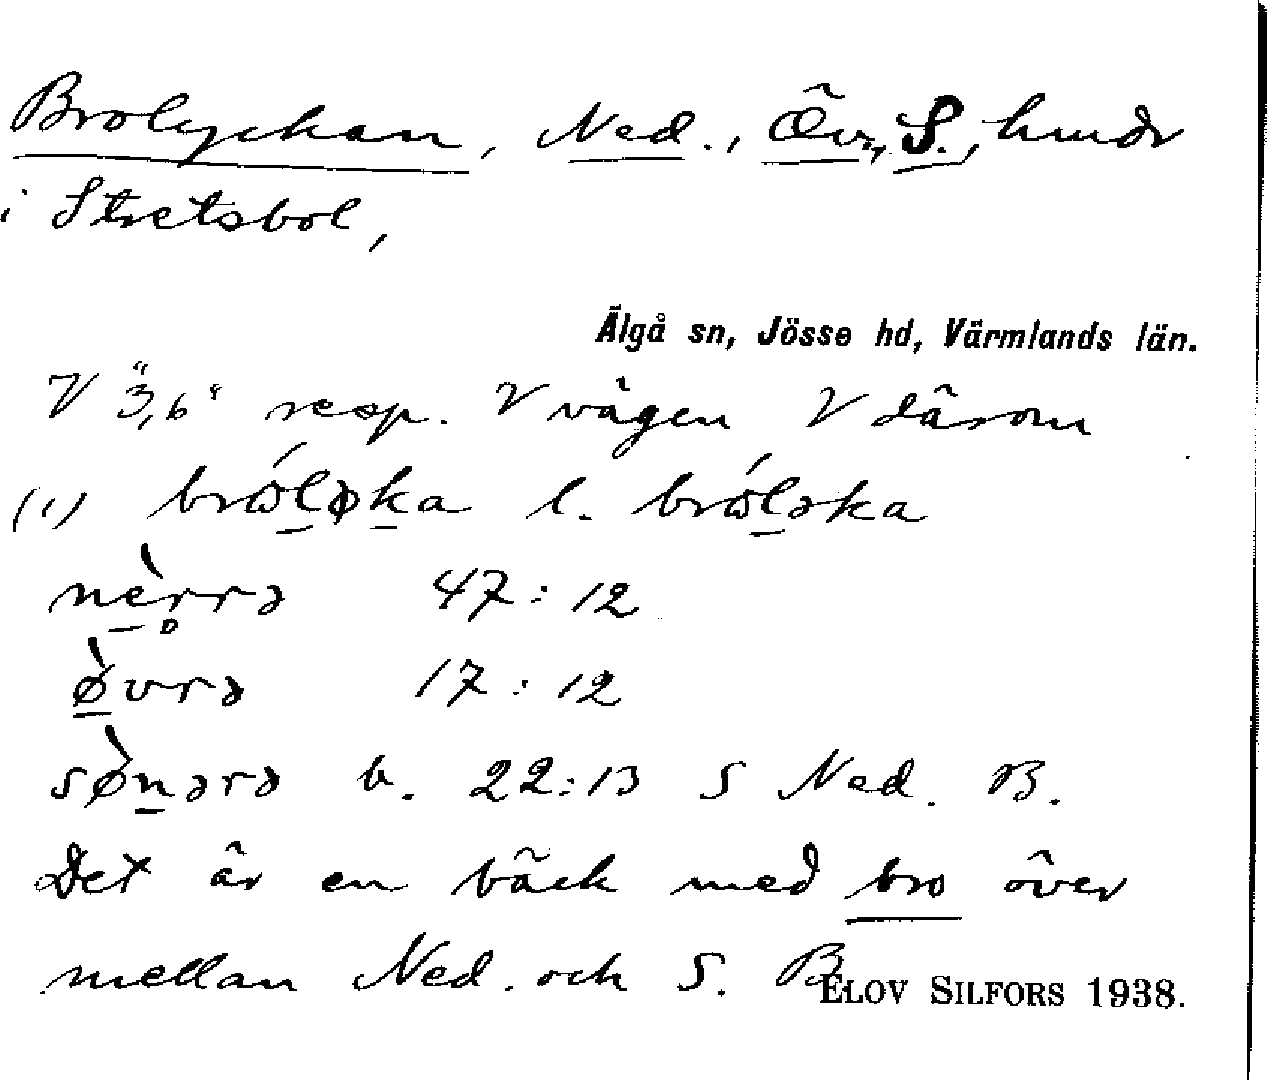 Brolyckan, Ned., Övr., S., hmdr
i Stretsbol,
Älgå sn, Jösse hd, Värmlands län.
V "3,6" resp. V vägen V därom
(1) brólǝka l. brólǝka
nèrrǝ 47:12
ø̀vrǝ 17:12
sø̀nǝrǝ b. 22:13 S Ned. B.
Det är en bäck med bro över
mellan Ned. och S. B
ELOV SILFORS 1938.